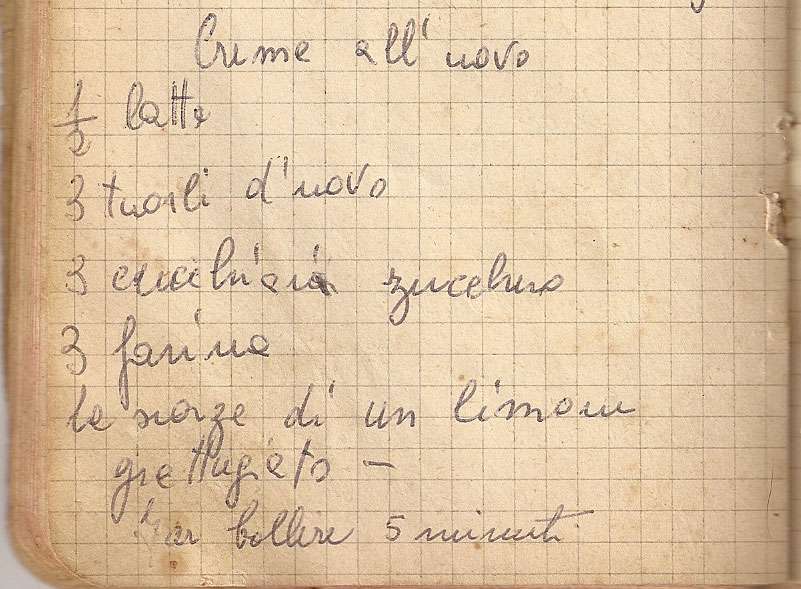 Creme all'uovo
1/2 latte
3 tuorli d'uovo
3 cucchiaia zucchero
3 farina
la scorze di un limone
grattugiato -
Far bollire 5 minuti